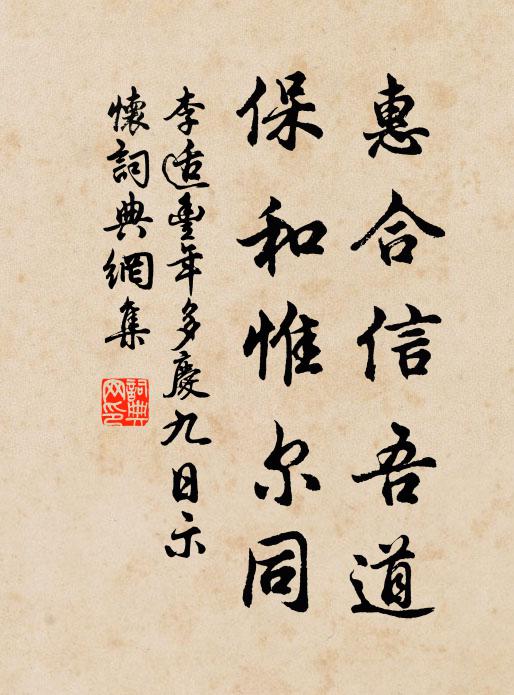 惠合信吾道
保和惟尔同
李适豐年多慶九日示
懷詞典網集
詞典
网印